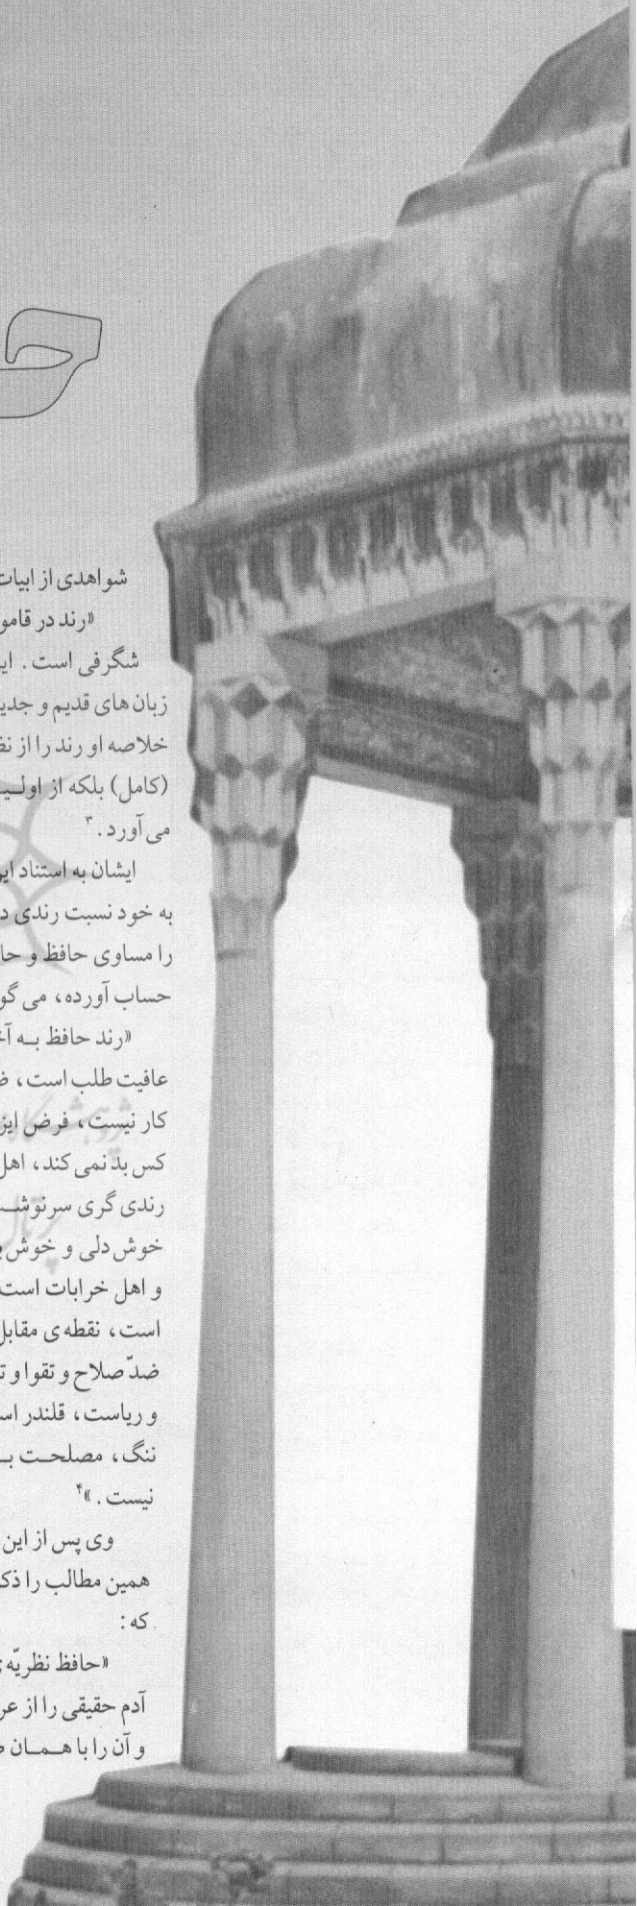 حـ
شواهدی از ابیات
«رند در قامو
شگرفی است. این
زبان های قدیم و جدید
خلاصه او رند را از نظ
(کامل) بلکه از اولـیـ
می آورد.۳
ایشان به استناد این
به خود نسبت رندی د
را مساوی حافظ و حا
حساب آورده، می گو
«رند حافظ بـه آخـ
عافیت طلب است، ض
کار نیست، فرض ایز
کس بد نمی کند، اهل
رندی گری سرنوشـت
خوش دلی و خوش با
و اهل خرابات است
است، نقطه ی مقابل
ضدّ صلاح و تقوا و تـ
و ریاست، قلندر اسـ
ننگ، مصلحـت بـ
نیست.»۴
وی پس از این
همین مطالب را ذکـ
که:
«حافظ نظریّه ی
آدم حقیقی را از عر
و آن را با هـمـان
پژوهشگاه
پرتال